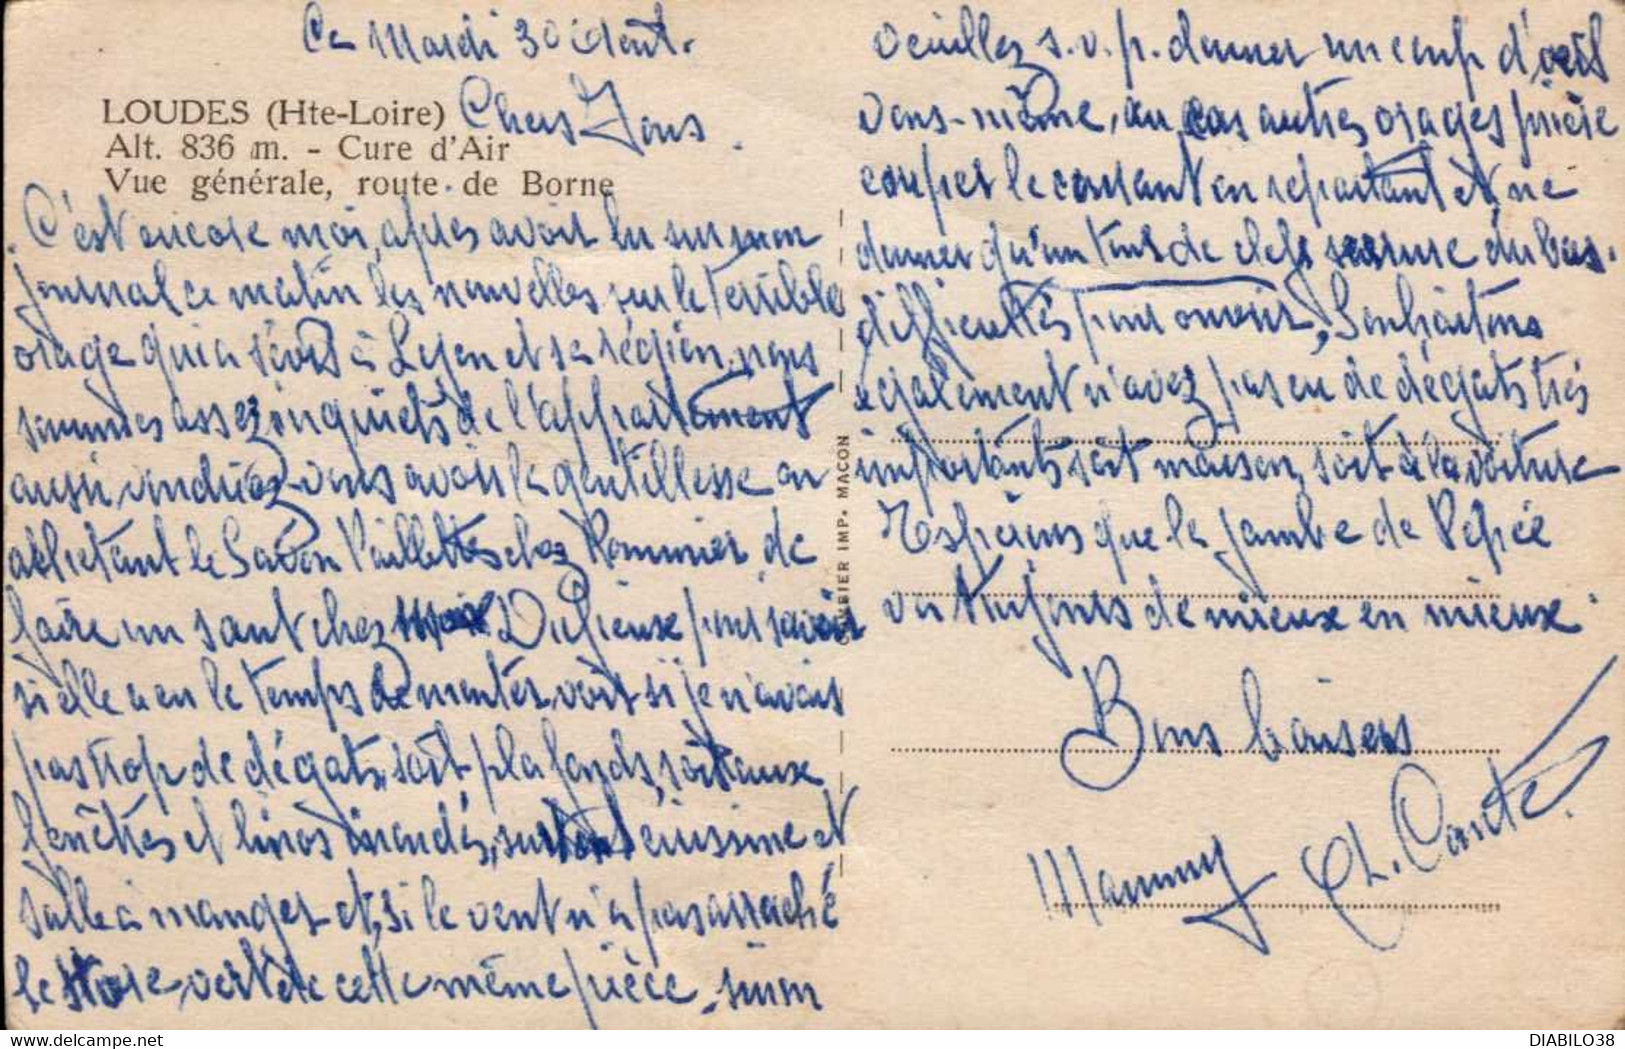 Ce Mardi 30 Août.
LOUDES (Hte-Loire)
Alt. 836 m. - Cure d'Air
Vue générale, route de Borne
Chers Tous.
C'est encore moi, après avoir lu sur mon
journal ce matin les nouvelles sur le terrible
orage qui a sévit à Lyon et sa région, nous
sommes assez inquiets de l'appartement
aussi voudriez-vous avoir la gentillesse en
achetant le Savon Paillettes chez Pommier de
faire un saut chez Dulieux pour savoir
si elle a eu le temps de monter voir si je n'avais
pas trop de dégats, soit plafonds, soit aux
fenêtres et linos inondés, surtout cuisine et
salle à manger et, si le vent n'a pas arraché
le store vert de cette même pièce, sinon
veuillez s.v.p. donner un coup d'œil
vous-même, au cas autres orages prière
couper le courant en repartant et ne
donner qu'un tour de clefs serrure du bas.
difficultés pour ouvrir, Souhaitons
également n'avez pas eu de dégats très
importants soit maison, soit à la voiture
Espérons que la jambe de Pépée
va toujours de mieux en mieux.
Bons baisers
Mammy Ch. Conte.
COMBIER IMP. MACON
DIABILO38